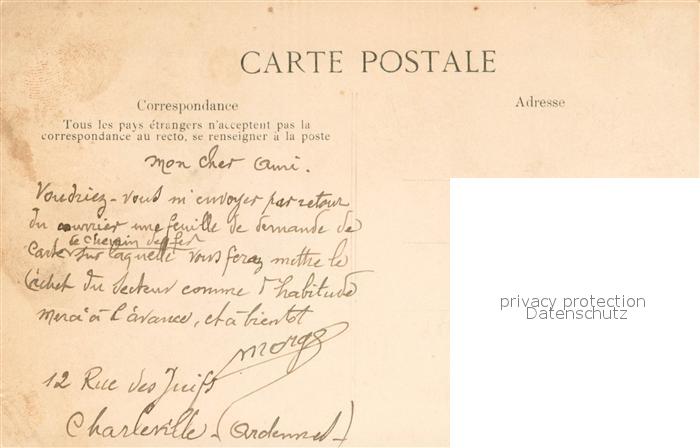 CARTE POSTALE
Correspondance
Adresse
Tous les pays étrangers n'acceptent pas la
correspondance au recto, se renseigner à la poste
Mon cher Ami.
Voudriez-vous m'envoyer par retour
du courrier une feuille de demande de
de chemin de fer
Carte sur laquelle vous ferez mettre le
Cachet du Secteur comme d'habitude
Merci à l'avance, et à bientôt
12 Rue des Juifs
Charleville (Ardennes)
privacy protection
Datenschutz